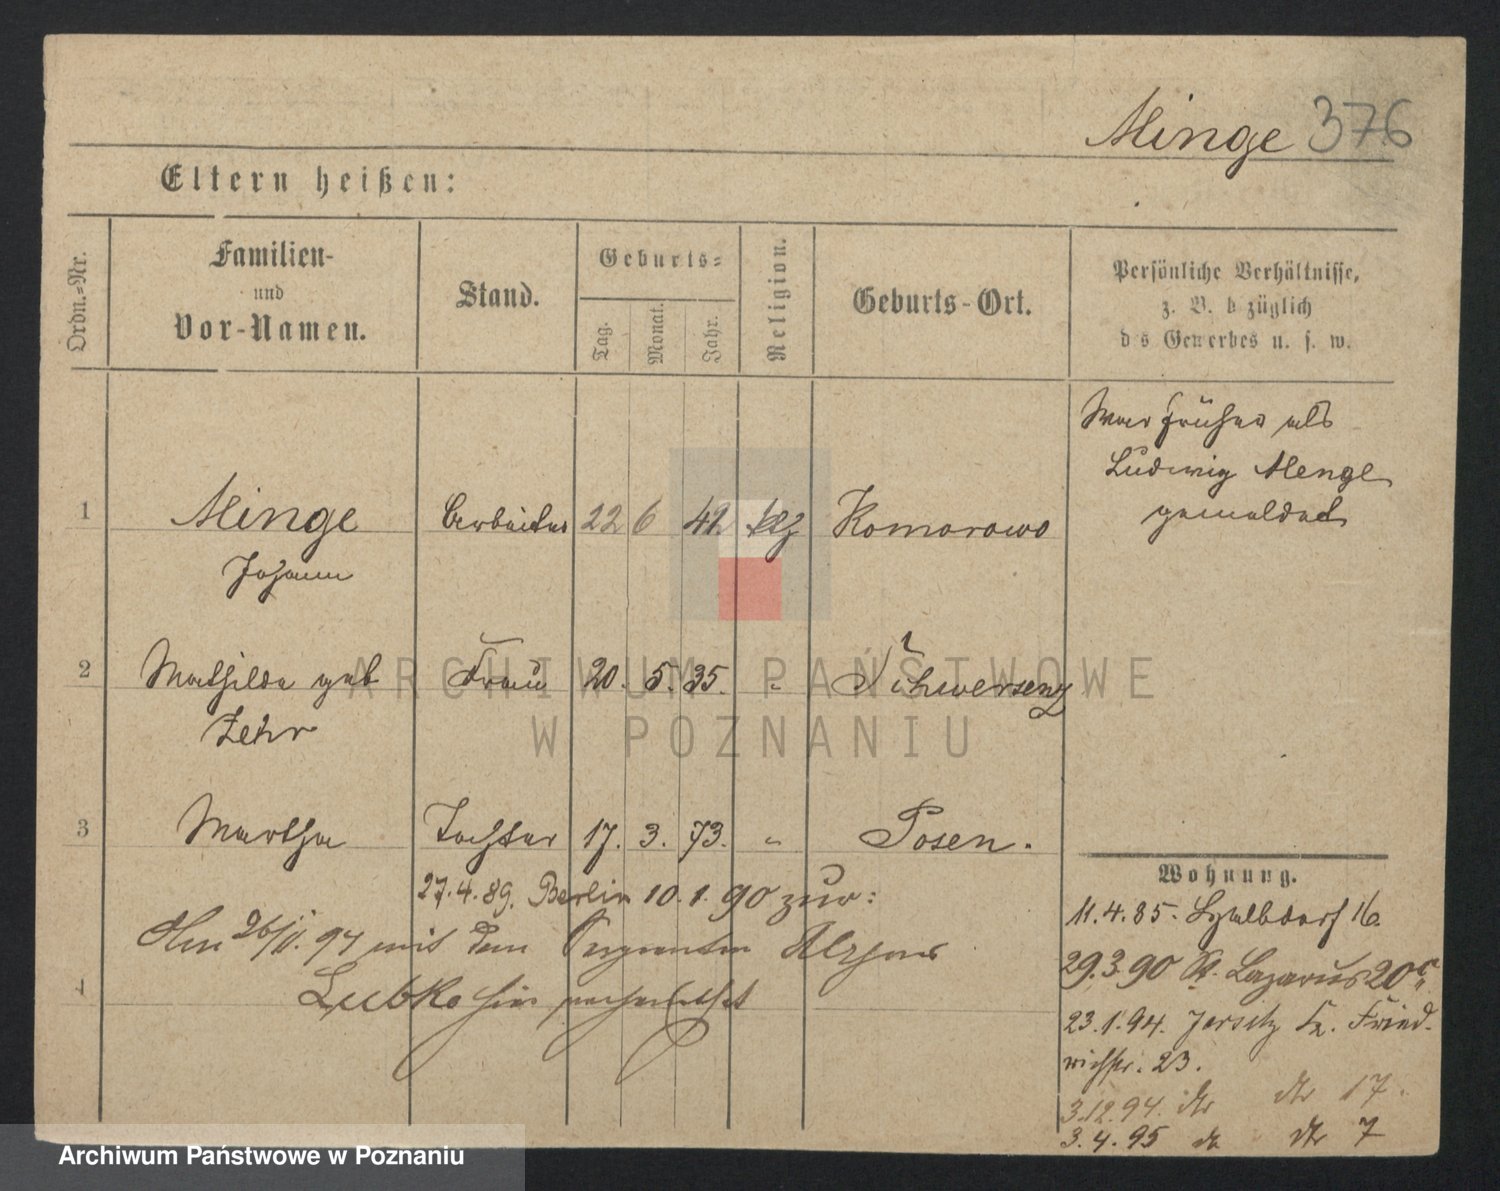 Minge 376
Eltern heißen:
Ordn.=Nr.
Familien-
und
Vor-Namen.
Stand.
Geburts=
Tag.
Monat.
Jahr.
Religion.
Geburts-Ort.
Persönliche Verhältnisse,
z. B. b züglich
d s Gewerbes u. s. w.
War früher als
Ludwig Menge
gemeldet
1 Minge Arbeiter 22 6 42 Komorowo
Johann
2 Mathilde geb Frau 20. 5. 35. " Schwersenz
Zehr
3 Martha Tochter 17. 3. 73. " Posen.
27.4.89. Berlin 10.1.90 zur:
Am 26/11.94 mit dem Sergeanten
Lubke hier verheirathet
4
Wohnung.
11.4.85. 16.
29.3.90 St. Lazarus 20
23.1.94. Jersitz Fried-
richstr. 23.
3.12.94. dto dto 17.
3.4.95 do dto 7
ARCHIWUM PAŃSTWOWE
W POZNANIU
Archiwum Państwowe w Poznaniu